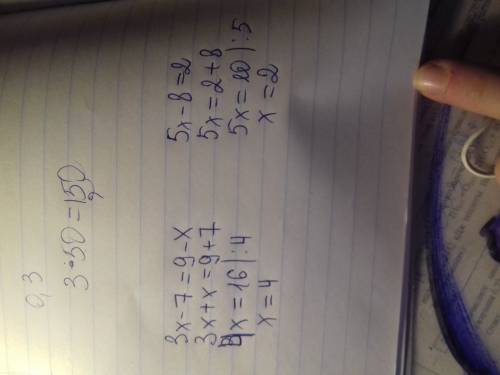 0,3
3*50=150
3x-7=9-x
3x+x=9+7
4x=16|:4
x=4
5x-8=2
5x=2+8
5x=10|:5
x=2